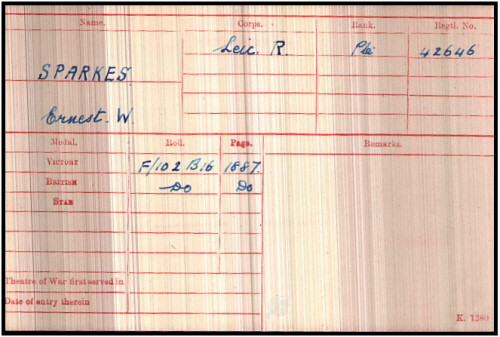 Name. Corps. Rank. Regtl. No.
SPARKES. Leic. R. Pte 42646
Ernest. W.
Medal. Roll. Page. Remarks.
VICTORY F/102 B16 1887.
BRITISH Do Do
STAR
Theatre of War first served in
Date of entry therein
K. 1380